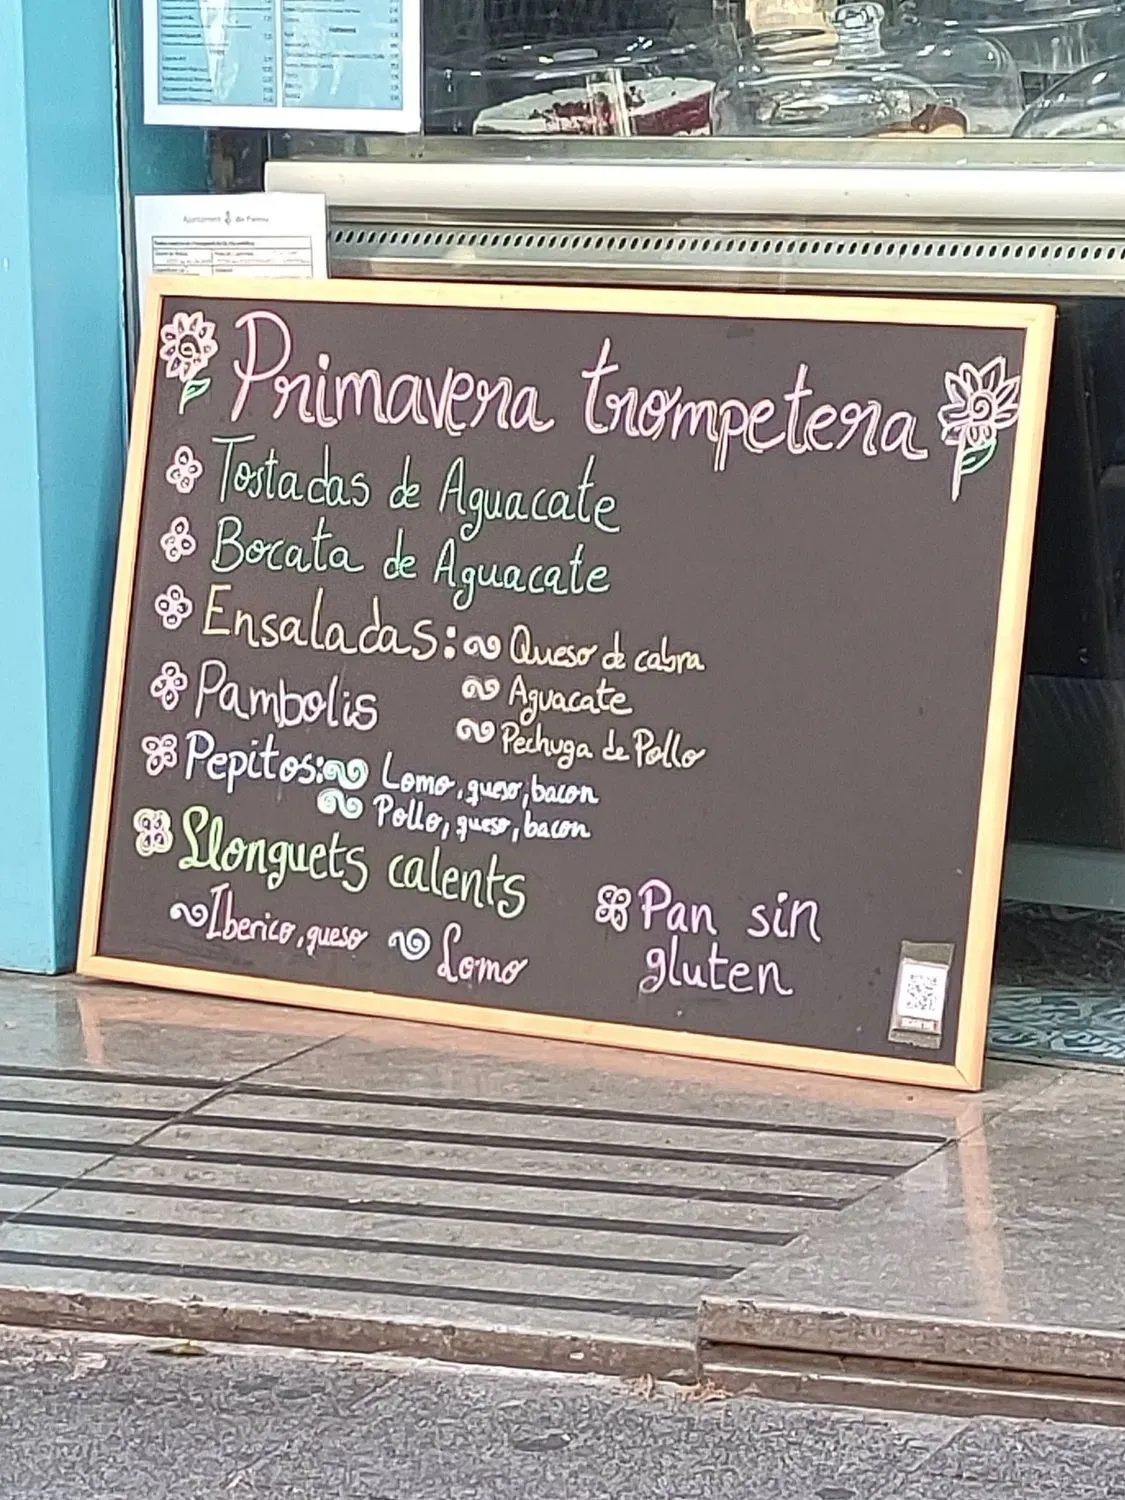 Ajuntament de Palma
Primavera trompetera
Tostadas de Aguacate
Bocata de Aguacate
Ensaladas: Queso de cabra
Aguacate
Pechuga de Pollo
Pambolis
Pepitos: Lomo, queso, bacon
Pollo, queso, bacon
Llonguets calents
Iberico, queso Lomo
Pan sin
gluten